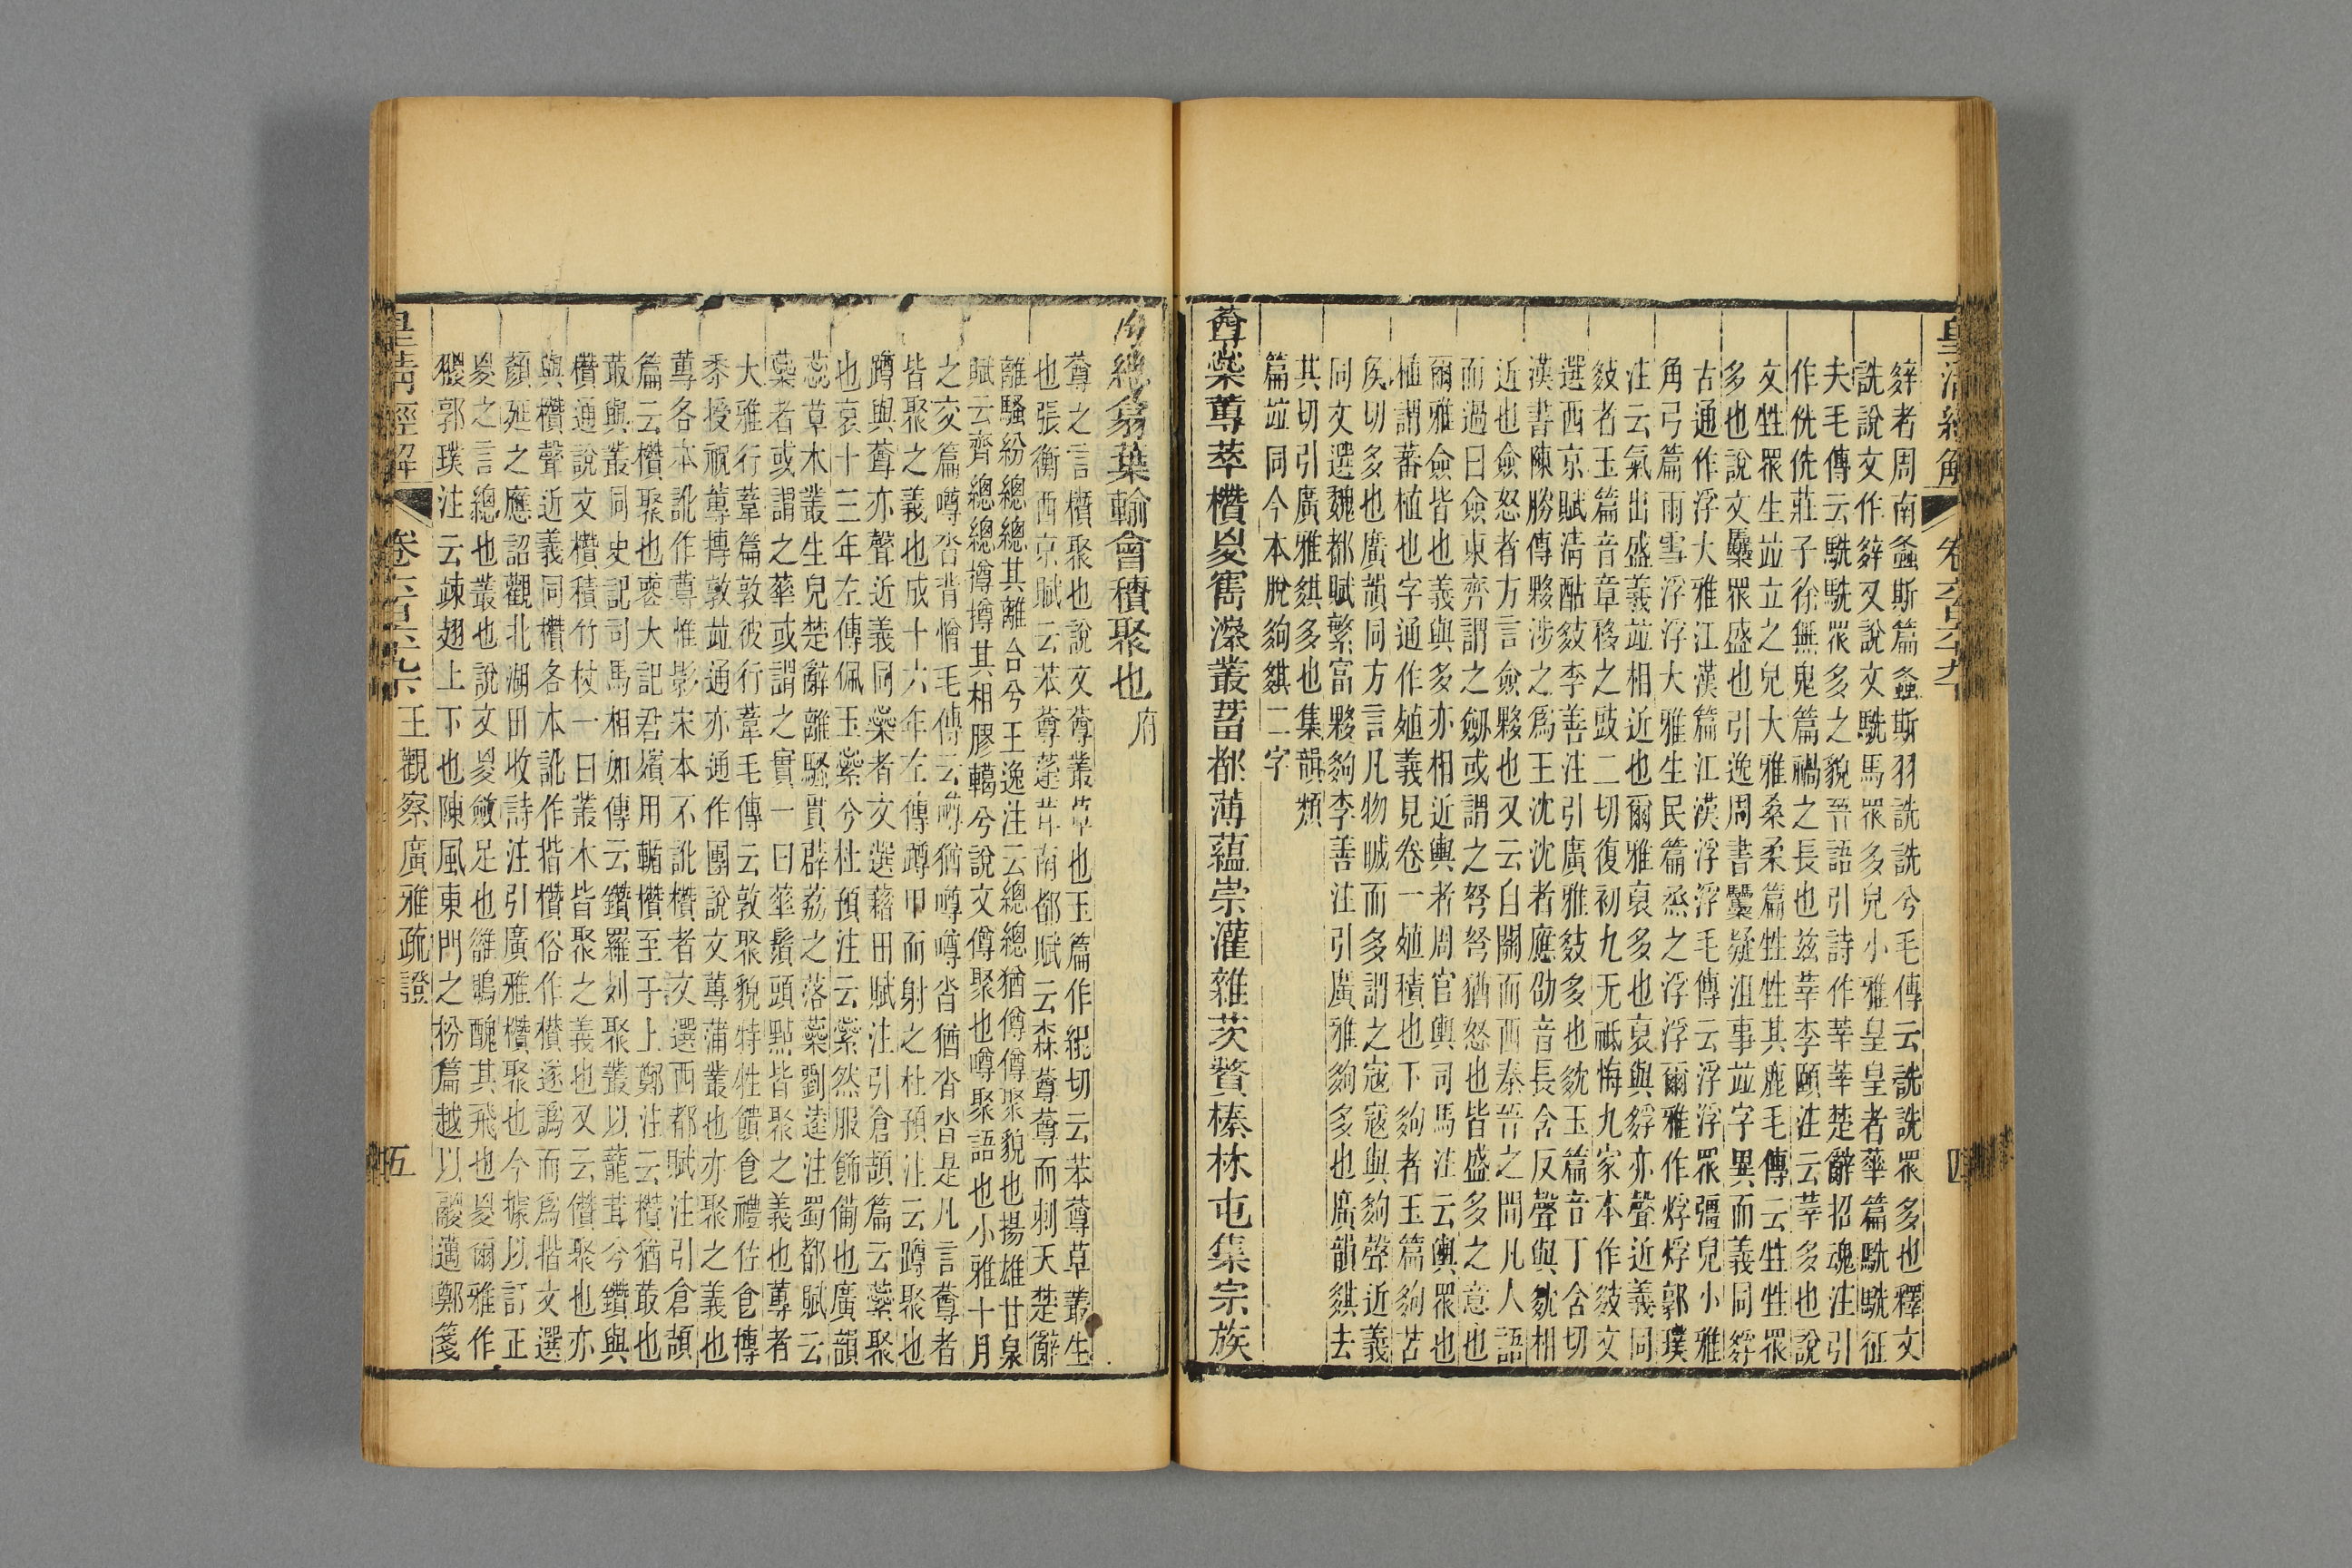 皇清經解
卷六百六十九
四
㚌者周南螽斯篇螽斯羽詵詵兮毛傳云詵詵眾多也釋文
詵說文作㚌又說文駪馬眾多皃小雅皇皇者華篇駪駪征
夫毛傳云駪駪眾多之貌晉語引詩作莘莘楚辭招魂注引
作侁侁莊子徐無鬼篇禍之長也茲莘李頤注云莘多也說
文甡眾生竝立之皃大雅桑柔篇甡甡其鹿毛傳云甡甡眾
多也說文㲲眾盛也引逸周書㲲疑沮事竝字異而義同㚌
古通作浮大雅江漢篇江漢浮浮毛傳云浮浮眾彊皃小雅
角弓篇雨雪浮浮大雅生民篇烝之浮浮爾雅作烰烰郭璞
注云氣出盛義竝相近也爾雅裒多也裒與㚌亦聲近義同
㚊者玉篇音章移之豉二切復初九无祗悔九家本作㚊文
選西京賦清酤㚊李善注引廣雅㚊多也㚋玉篇音丁含切
漢書陳勝傳夥涉之爲王沈沈者應劭音長含反聲與㚋相
近也僉怒者方言僉夥也又云自關而西秦晉之閒凡人語
而過曰僉東齊謂之劒或謂之弩弩猶怒也皆盛多之意也
爾雅僉皆也義與多亦相近輿者周官輿司馬注云輿眾也
植謂蕃植也字通作殖義見卷一殖積也下夠者玉篇夠苦
矦切多也廣韻同方言凡物晠而多謂之寇寇與夠聲近義
同文選魏都賦繁富夥夠李善注引廣雅夠多也廣韻㚉去
其切引廣雅㚉多也集韻類
篇竝同今本脫夠㚉二字
蓴㭰蓴萃欑㚇雋濢叢蓄都薄蘊崇灌雜茨贅榛林屯集宗族
總翕葉輸會積聚也府
蓴之言欑聚也說文蓴叢草也玉篇作緄切云苯蓴草叢生
也張衡西京賦云苯蓴蓬茸南都賦云森蓴蓴而刺天楚辭
離騷紛總總其離合兮王逸注云總總猶僔僔聚貌也揚雄甘泉
賦云齊總總撙撙其相膠轕兮說文僔聚也噂聚語也小雅十月
之交篇噂沓背憎毛傳云噂猶噂噂沓猶沓沓是凡言蓴者
皆聚之義也成十六年左傳蹲甲而射之杜預注云蹲聚也
蹲與蓴亦聲近義同蘂者文選藉田賦注引倉頡篇云蘂聚
也哀十三年左傳佩玉繠兮杜預注云繠然服飾備也廣韻
蕊草木叢生皃楚辭離騷貫薜荔之落蘂劉逵注蜀都賦云
蘂者或謂之華或謂之實一曰華鬚頭點皆聚之義也蓴者
大雅行葦篇敦彼行葦毛傳云敦聚貌特牲饋食禮佐食摶
黍授祝蓴摶敦竝通亦通作團說文蓴蒲叢也亦聚之義也
蓴各本訛作尊惟影宋本不訛欑者文選西都賦注引倉頡
篇云欑聚也喪大記君殯用輴欑至于上鄭注云欑猶菆也
菆與叢同史記司馬相如傳云鑽羅列聚叢以蘢茸兮鑽與
欑通說文欑積竹杖一曰叢木皆聚之義也又云儹聚也亦
與欑聲近義同欑各本訛作揝欑俗作櫕遂譌而爲揝文選
顏延之應詔觀北湖田收詩注引廣雅欑聚也今據以訂正
㚇之言總也叢也說文㚇斂足也鵻鵙醜其飛也㚇爾雅作
猣郭璞注云竦翅上下也陳風東門之枌篇越以鬷邁鄭箋
王觀察廣雅疏證
皇清經解
五